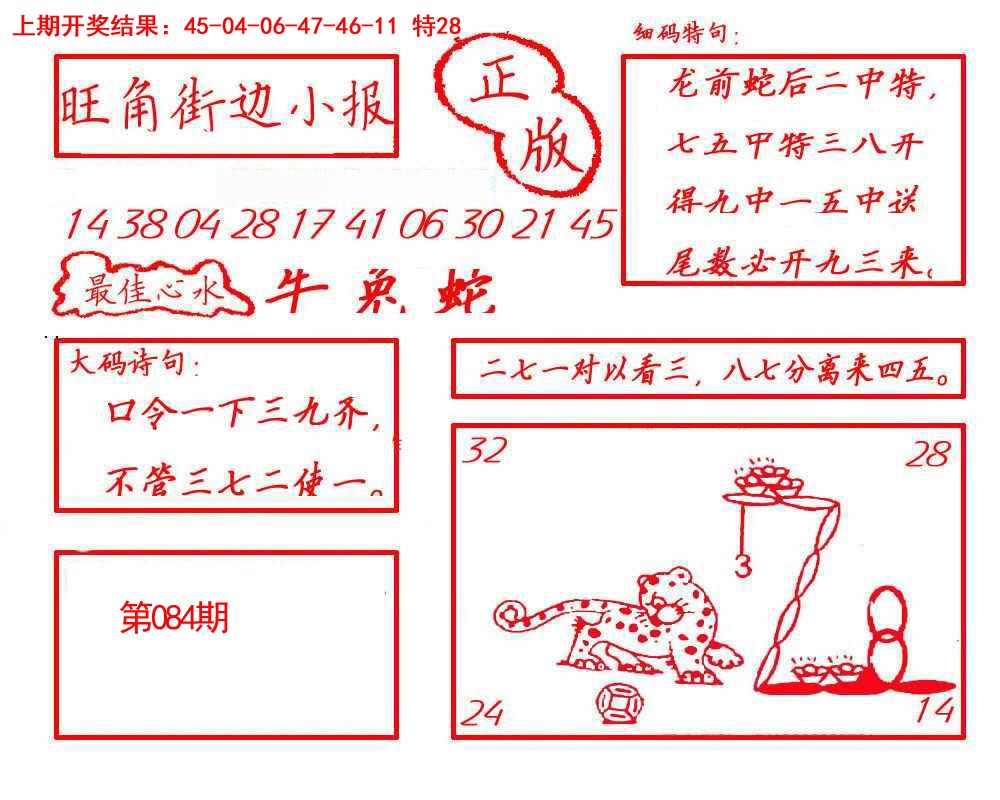 上期开奖结果：45-04-06-47-46-11 特28
旺角街边小报
正版
细码特句：
龙前蛇后二中特，
七五甲特三八开
得九中一五中送
尾数必开九三来。
14 38 04 28 17 41 06 30 21 45
最佳心水 牛 兔 蛇
大码诗句：
口令一下三九齐，
不管三七二使一。
二七一对以看三，八七分离来四五。
32
28
3
24
14
第084期